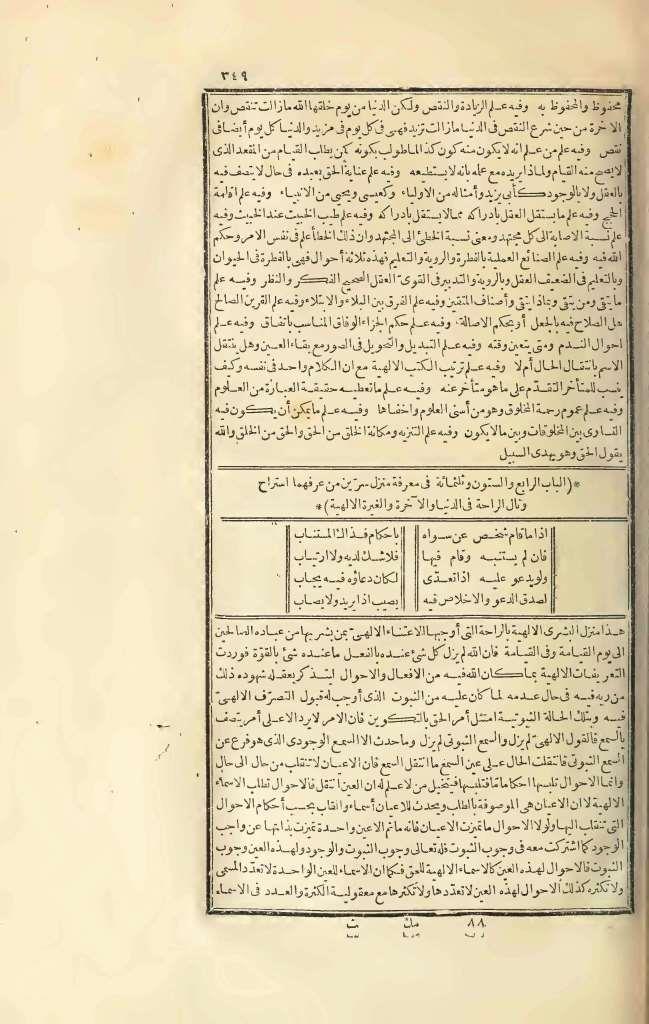 ٣٤٩
محفوظ والمحفوظ به وفيه علم الزيادة والنقص ولكن الدنيا من يوم خلقها الله مازالت تنقص وان
الآخرة من حين شرع النقص فى الدنيا مازالت تزيد فهى فى كل يوم فى مزيد والدنيا كل يوم أيضا فى
نقص وفيه علم من علم انه لا يكون منه كون كذا لمطلوب بكونه كمن يطلب القيام من المقعد الذى
لا يصح منه القيام ولماذا يريده مع علمه بانه لا يستطيعه وفيه علم عناية الحق بعبده فى حال لا يتصف فيه
بالعقل ولا بالوجود كأبى يزيد وأمثاله من الاولياء وكعيسى ويحيى من الانبياء وفيه علم اقامة
الحجج وفيه علم ما يستقل العقل بادراكه مما لا يستقل بادراكه وفيه علم طيب الخبيث عند الخبيث وفيه
علم نسبة الاصابة الى كل مجتهد ومعنى نسبة الخطئ الى المجتهد وان ذلك الخطأ علم فى نفس الامر وحكم
الله فيه وفيه علم الصنائع العملية بالفطرة والروية والتعليم فهذه ثلاثة أحوال فهى بالفطرة فى الحيوان
وبالتعليم فى الضعيف العقل وبالروية والتدبير فى القوى العقل الصحيح الفكر والنظر وفيه علم
ما يتقى ومن يتقى وبماذا يتقى وأصناف المتقين وفيه علم الفرق بين البلاء والابتلاء وفيه علم القرين الصالح
هل الصلاح فيه بالجعل أو بحكم الاصالة وفيه علم حكم الجزاء الوفاق المناسب باتفاق وفيه علم
احوال الندم ومتى يتعين وقته وفيه علم التبديل والتحويل فى الصور مع بقاء العين وهل ينتقل
الاسم بانتقال الحال أم لا وفيه علم ترتيب الكتب الالهية مع ان الكلام واحد فى نفسه وكيف
ينسب للمتأخر التقدّم على ما هو متأخر عنه وفيه علم ما تعطيه حقيقة العبارة من العلوم
وفيه علم عموم رحمة المخلوق وهو من أسنى العلوم واخفاها وفيه علم ما يمكن أن يكون فيه
التساوى بين المخلوقات وبين ما لا يكون وفيه علم التنزيه ومكانة الخلق من الحق والحق من الخلق والله
يقول الحق وهو يهدى السبيل
*(الباب الرابع والستون وثلثمائة فى معرفة منزل سرّين من عرفهما استراح
ونال الراحة فى الدنيا والآخرة والغيرة الالهية)*
اذا ما قام شخص عن سواه باحكام فذاك المستناب
فان لم يستنبه وقام فيها فلا شك لديه ولا ارتياب
ولو يدعو عليه اذا تعدّى لكان دعاؤه فيه يجاب
لصدق الدعو والاخلاص فيه يصيب اذا يريد ولا يصاب
هذا منزل البشرى الالهية بالراحة التى أوجبها الاعتناء الالهى بمن بشر بها من عباده الصالحين
الى يوم القيامة وفى القيامة فان الله لم يزل كل شئ عنده بالفعل ما عنده شئ بالقوّة فوردت
التعريفات الالهية بما كان الله فيه من الافعال والاحوال ليتذكر بعقله شهوده ذلك
من ربه فيه فى حال عدمه لما كان عليه من الثبوت الذى أوجب له قبول التصرّف الالهى
فيه وبتلك الحالة الثبوتية امتثل أمر الحق بالتكوين فان الامر لا يرد الا على أمر يتصف
بالسمع فالقول الالهى لم يزل والسمع الثبوتى لم يزل وما حدث الا السمع الوجودى الذى هو فرع عن
السمع الثبوتى فانتقلت الحال على عين السمع ما انتقل السمع فان الاعيان لا تنقلب من حال الى حال
وانما الاحوال تلبسها احكاما فتلبسها فيتخيل من لا علم له ان العين انتقل فالاحوال تطلب الاسماء
الالهية لا ان الاعيان هى الموصوفة بالطلب ويحدث للاعيان أسماء والقاب بحسب أحكام الاحوال
التى تنقلب اليها ولولا الاحوال ما تميزت الاعيان فانه ما ثم الا عين واحدة تميزت بذاتها عن واجب
الوجود كما اشتركت معه فى وجوب الثبوت فله تعالى وجوب الثبوت والوجود ولهذه العين وجوب
الثبوت فالاحوال لهذه العين كالاسماء الالهية للحق فكما ان الاسماء للعين الواحدة لا تعدّد المسمى
ولا تكثره كذلك الاحوال لهذه العين لا تعدّدها ولا تكثرها مع معقولية الكثرة والعدد فى الاسماء
٨٨ مك ث